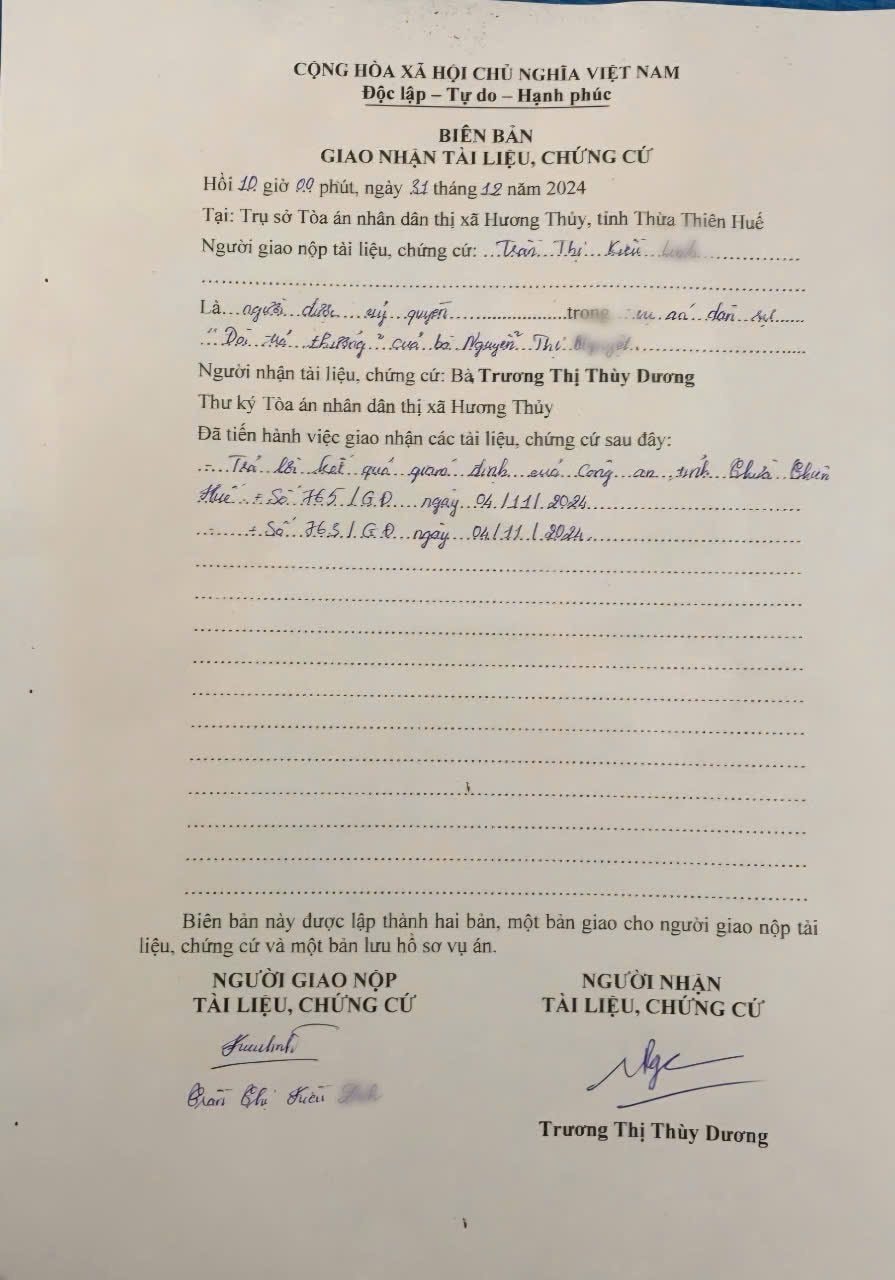 CỘNG HÒA XÃ HỘI CHỦ NGHĨA VIỆT NAM
Độc lập – Tự do – Hạnh phúc
BIÊN BẢN
GIAO NHẬN TÀI LIỆU, CHỨNG CỨ
Hồi 10 giờ 00 phút, ngày 31 tháng 12 năm 2024
Tại: Trụ sở Tòa án nhân dân thị xã Hương Thủy, tỉnh Thừa Thiên Huế
Người giao nộp tài liệu, chứng cứ: Trần Thị Kiều
Là người được uỷ quyền trong án dân sự
"Đòi trả thưởng" của bà Nguyễn Thị
Người nhận tài liệu, chứng cứ: Bà Trương Thị Thùy Dương
Thư ký Tòa án nhân dân thị xã Hương Thủy
Đã tiến hành việc giao nhận các tài liệu, chứng cứ sau đây:
- Trả lời kết quả giám định của Công an tỉnh Thừa Thiên
Huế + Số 765/GĐ ngày 04/11/2024
+ Số 763/GĐ ngày 04/11/2024.
Biên bản này được lập thành hai bản, một bản giao cho người giao nộp tài
liệu, chứng cứ và một bản lưu hồ sơ vụ án.
NGƯỜI GIAO NỘP
TÀI LIỆU, CHỨNG CỨ
NGƯỜI NHẬN
TÀI LIỆU, CHỨNG CỨ
Trần Thị Kiều
Trương Thị Thùy Dương